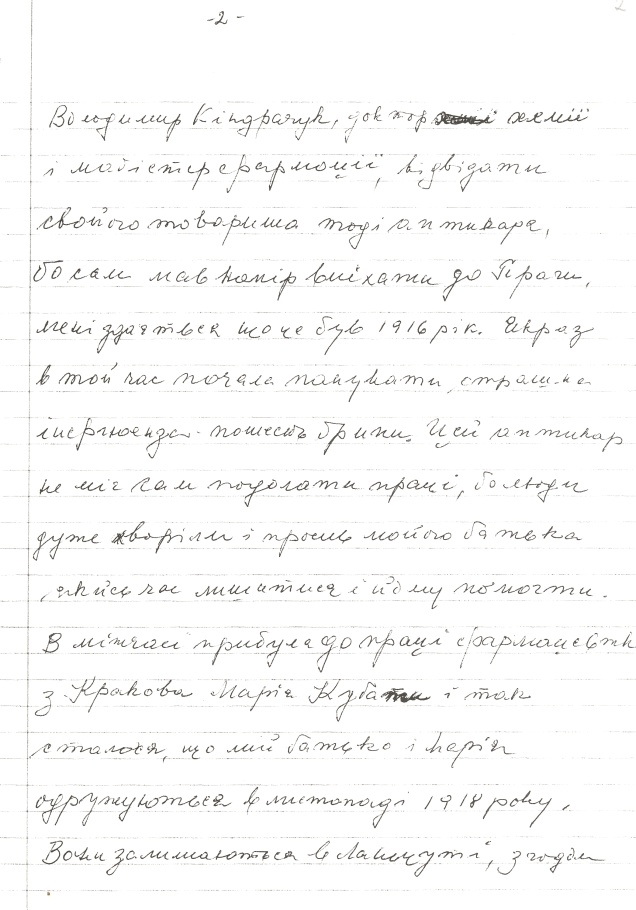 -2-
2
Володимир Кіндрачук, доктор хемії
і маґістер фармації, відвідати
свойого товариша тоді аптикаря,
бо сам мав намір виїхати до Праги,
мені здається що це був 1916 рік. Якраз
в той час почала панувати страшна
інфлюенза - пошесть грипи. Цей аптикар
не міг сам подолати праці, бо люди
дуже хворіли і просив мойого батька
якийсь час лишитися і йому помогти.
В міжчасі прибула до праці фармацевтк
з Кракова Марія Кубати і так
сталося, що мій батько і Марія
одружуються в листопаді 1918 року.
Вони залишаються в Ланцуті, згодом